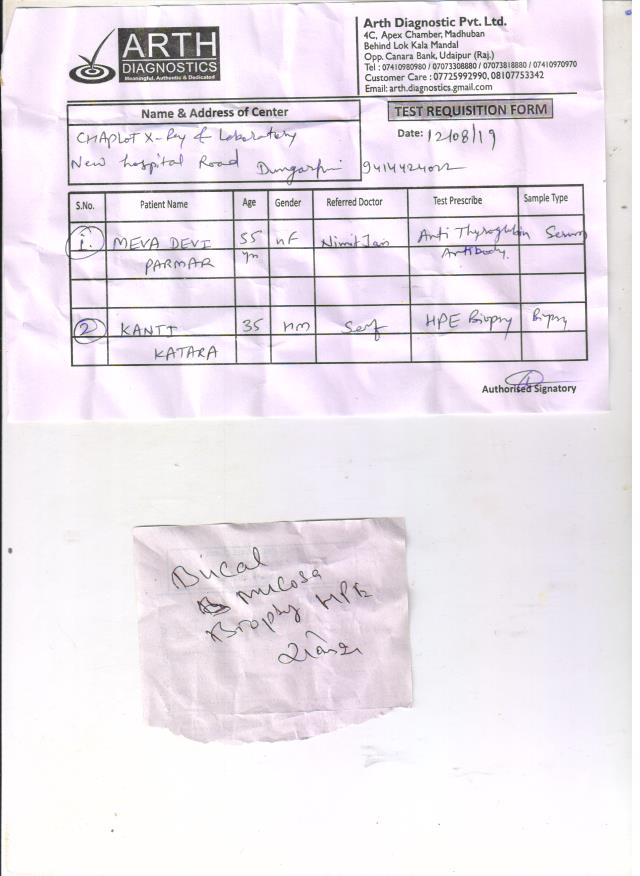 ARTH
DIAGNOSTICS
Meaningful, Authentic & Dedicated
Arth Diagnostic Pvt. Ltd.
4C, Apex Chamber, Madhuban
Behind Lok Kala Mandal
Opp. Canara Bank, Udaipur (Raj.)
Tel : 07410980980 / 07073308880 / 07073818880 / 07410970970
Customer Care : 07725992990, 08107753342
Email: arth.diagnostics.gmail.com
Name & Address of Center
TEST REQUISITION FORM
CHAPLOT X-Ray & Laboratory
New hospital Road Dungarpur 9414424022
Date: 12/08/19
S.No. Patient Name Age Gender Referred Doctor Test Prescribe Sample Type
1. MEVA DEVI 55 F Nimit Jain Anti Thyroglobulin Serum
PARMAR Antibody.
2 KANTI 35 Self HPE Biopsy Biopsy
KATARA
Authorised Signatory
Bucal
Mucosa
Biopsy HPE